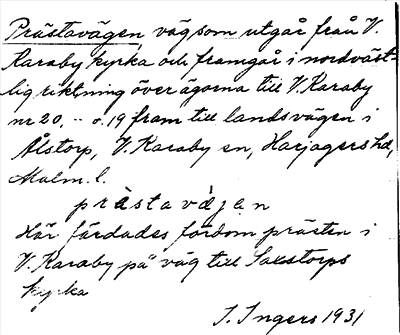 Prästavägen, väg som utgår från V.
Karaby kyrka och framgår i nordväst-
lig riktning över ägorna till V. Karaby
nr 20, -- o. 19 fram till landsvägen i
Ålstorp, V. Karaby sn, Harjagers hd,
Malm. l.
prästavàjan
Här färdades fordom prästen i
V. Karaby på väg till Saxtorps
kyrka
I. Ingers 1931